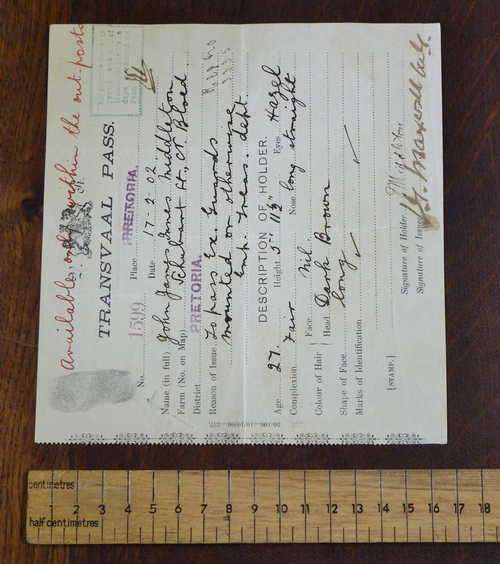 Available only within the out. posts
TRANSVAAL PASS.
No. 1599 Place PRETORIA.
Date 17-2-02
Name (in full) John James Jones Middleton
Farm (No. on Map) Schubart St, Cr. Bloed
District PRETORIA.
Reason of Issue To pass Ex. Guards
mounted or otherwise
Emp. Treas. dept.
DESCRIPTION OF HOLDER.
Age 27. Height 5' 11½" Eyes Hazel
Complexion Fair Nose long straight
Colour of Hair Face nil
Head Dark Brown
Shape of Face long
Marks of Identification
[STAMP.]
Signature of Holder
Signature of Issuer
centimetres
1 2 3 4 5 6 7 8 9 10 11 12 13 14 15 16 17 18
half centimetres